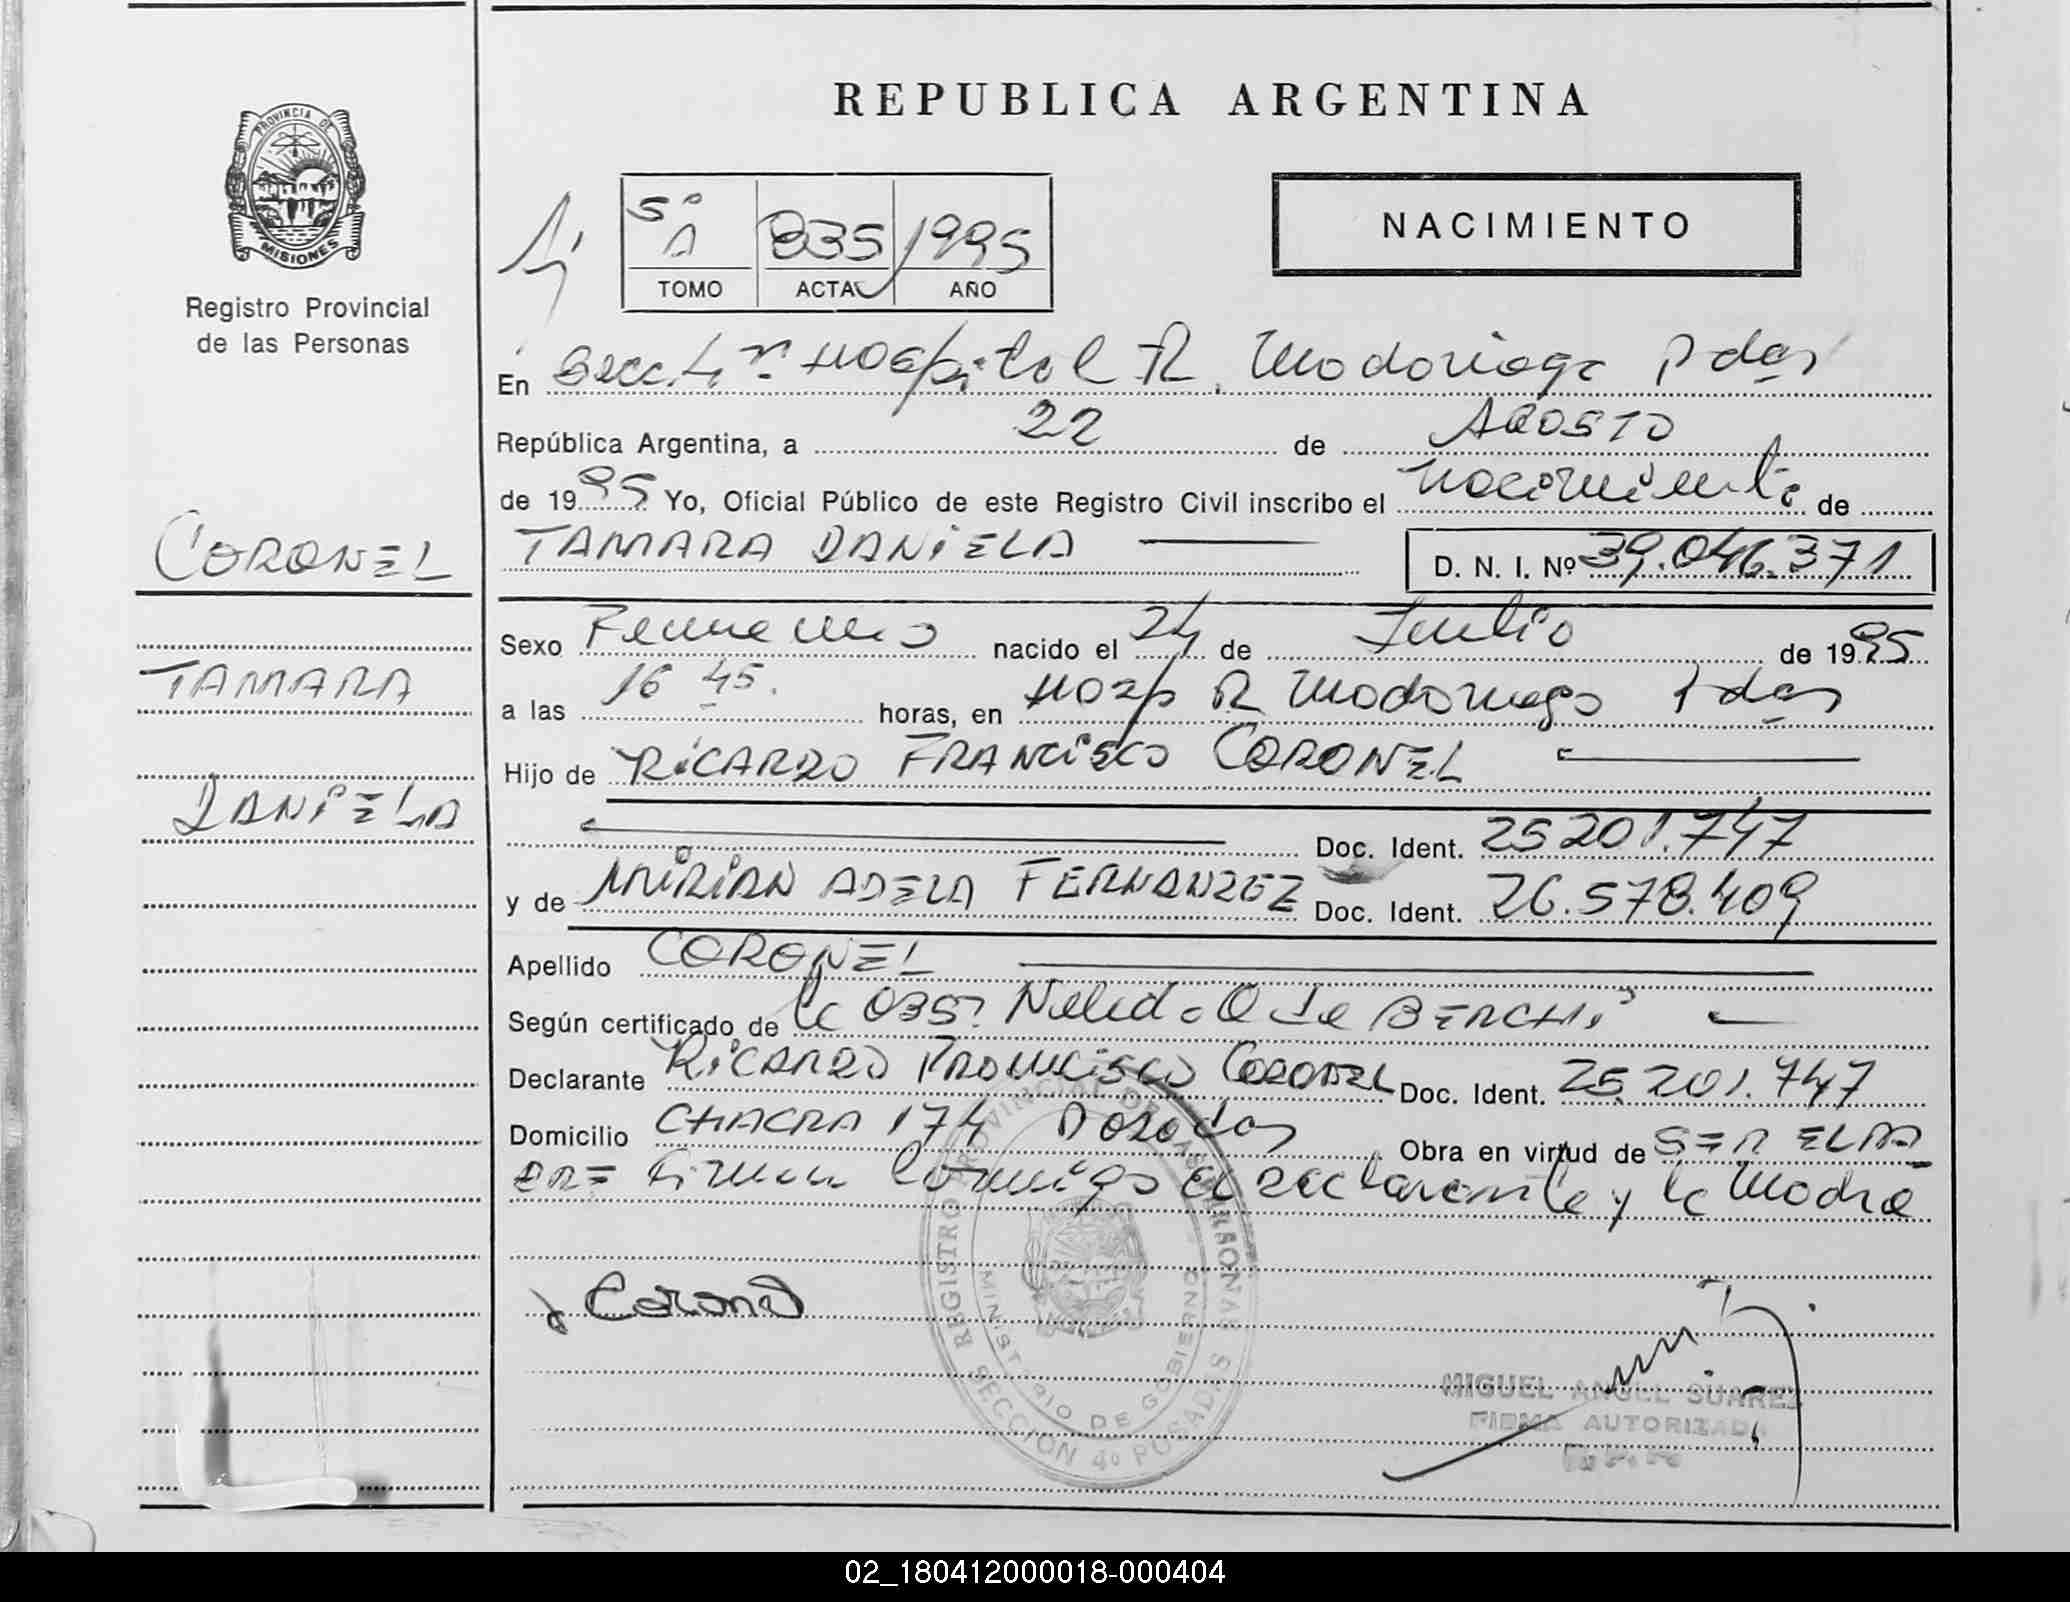 REPUBLICA ARGENTINA
PROVINCIA DE
MISIONES
Registro Provincial
de las Personas
NACIMIENTO
5º A 835 1995
TOMO ACTA AÑO
En Secc. 4ª Hospital R. Madariaga Pdas
República Argentina, a 22 de AGOSTO
de 1995 Yo, Oficial Público de este Registro Civil inscribo el nacimiento de
CORONEL
TAMARA DANIELA
D. N. I. Nº 39.046.371
Sexo Femenino nacido el 24 de Julio de 1995
TAMARA
a las 16 45. horas, en Hosp R Madariaga Pdas
Hijo de RICARDO FRANCISCO CORONEL
DANIELA
Doc. Ident. 25201.747
y de MIRIAN ADELA FERNANDEZ Doc. Ident. 26.578.409
Apellido CORONEL
Según certificado de la OBST Nelida de BERCHI
Declarante RICARDO FRANCISCO CORONEL Doc. Ident. 25.201.747
Domicilio CHACRA 174 Posadas Obra en virtud de SER EL PA
DRE Firman conmigo el declarante y la Madre
Coronel
REGISTRO PROVINCIAL DE LAS PERSONAS
MINISTERIO DE GOBIERNO
SECCION 4º POSADAS
MIGUEL ANGEL SUAREZ
FIRMA AUTORIZADA
R.P.P.
02_180412000018-000404